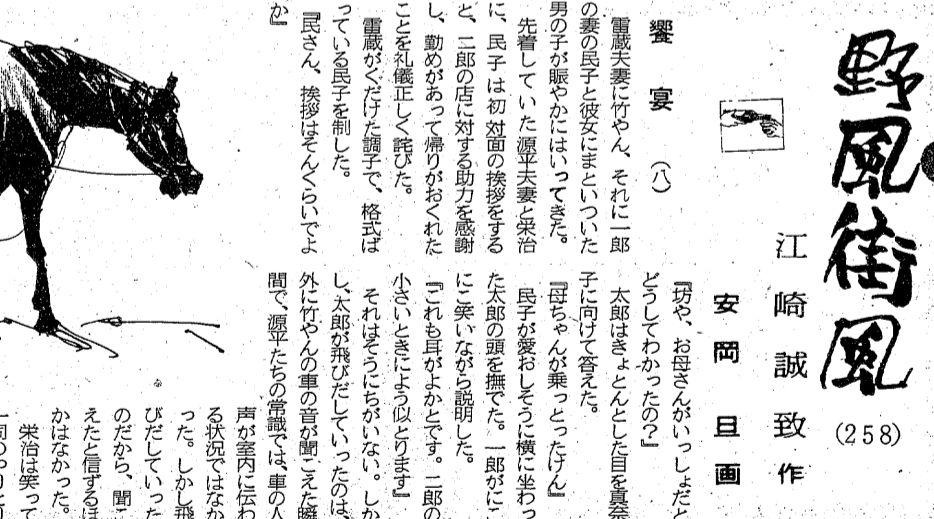 野風街風
(258)
江崎誠致作
安岡旦画
饗宴 (八)
雷蔵夫妻に竹やん、それに一郎
の妻の民子と彼女にまといついた
男の子が賑やかにはいってきた。
先着していた源平夫妻と栄治
に、民子は初対面の挨拶をする
と、二郎の店に対する助力を感謝
し、勤めがあって帰りがおくれた
ことを礼儀正しく詫びた。
雷蔵がくだけた調子で、格式ば
っている民子を制した。
『民さん、挨拶はそんくらいでよ
か』
『坊や、お母さんがいっしょだと
どうしてわかったの?』
太郎はきょとんとした目を真奈
子に向けて答えた。
『母ちゃんが乗っとったけん』
民子が愛おしそうに横に坐わっ
た太郎の頭を撫でた。一郎がにこ
にこ笑いながら説明した。
『これも耳がよかとです。二郎の
小さいときによう似とります』
それはそうにちがいない。しか
し、太郎が飛びだしていったのは、
外に竹やんの車の音が聞こえた瞬
間で、源平たちの常識では、車の人
声が室内に伝わ
る状況ではなか
った。しかし飛
びだしていった
のだから、聞こ
えたと信ずるほ
かはなかった。
栄治は笑って